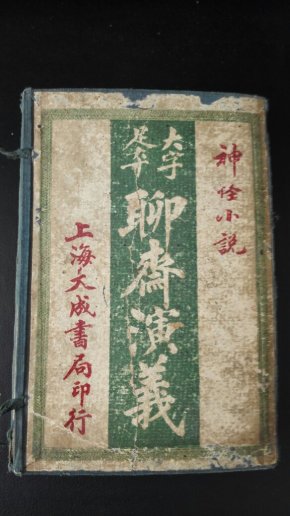 神怪小說
大字
足本
聊齋演義
上海大成書局印行